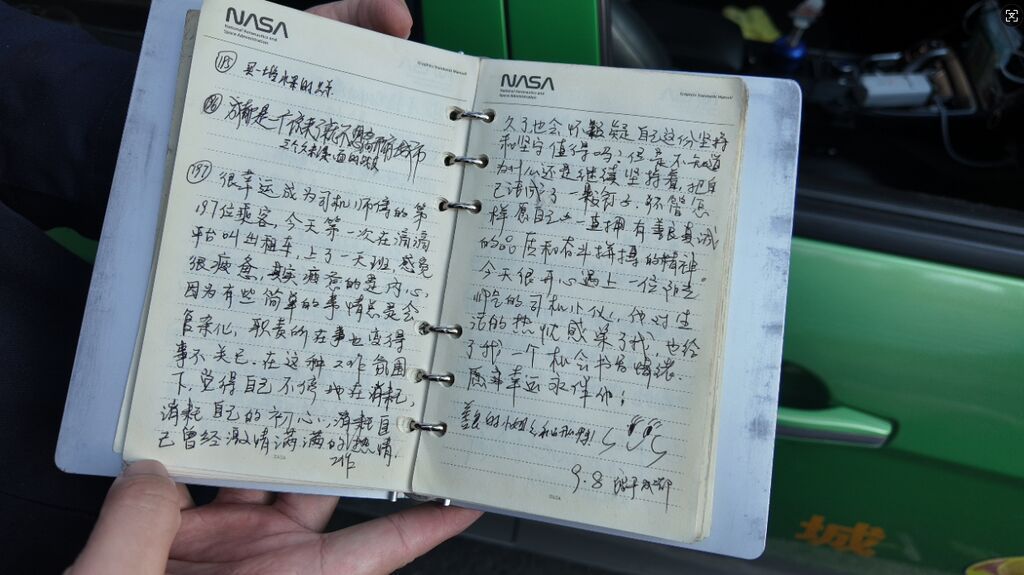 NASA
National Aeronautics and
Space Administration
Graphics Standards Manual
195
196
成都是一个你来了就不想离开的城市
197
很幸运成为司机师傅的第
197位乘客,今天第一次在滴滴
平台叫出租车,上了一天班,感觉
很疲惫,其实疲惫的是内心,
因为有些简单的事情总是会
复杂化,职责所在事也变得
事不关己,在这种工作氛围
下,觉得自己不停地在消耗,
消耗自己的初心,消耗自
己曾经激情满满的热情.
工作
NASA
National Aeronautics and
Space Administration
Graphics Standards Manual
久了也会怀疑自己这份坚持
和坚守值得吗,但是不知道
为什么还要继续坚持着,把自
己活成了一颗钉子,不管怎
样愿自己一直拥有善良真诚
的品质和奋斗拼搏的精神
今天很开心遇上一位阳光
帅气的司机小伙,他对生
活的热忱感染了我,也给
了我一个机会书写情绪.
愿幸运永伴你;
9.8 于成都
城